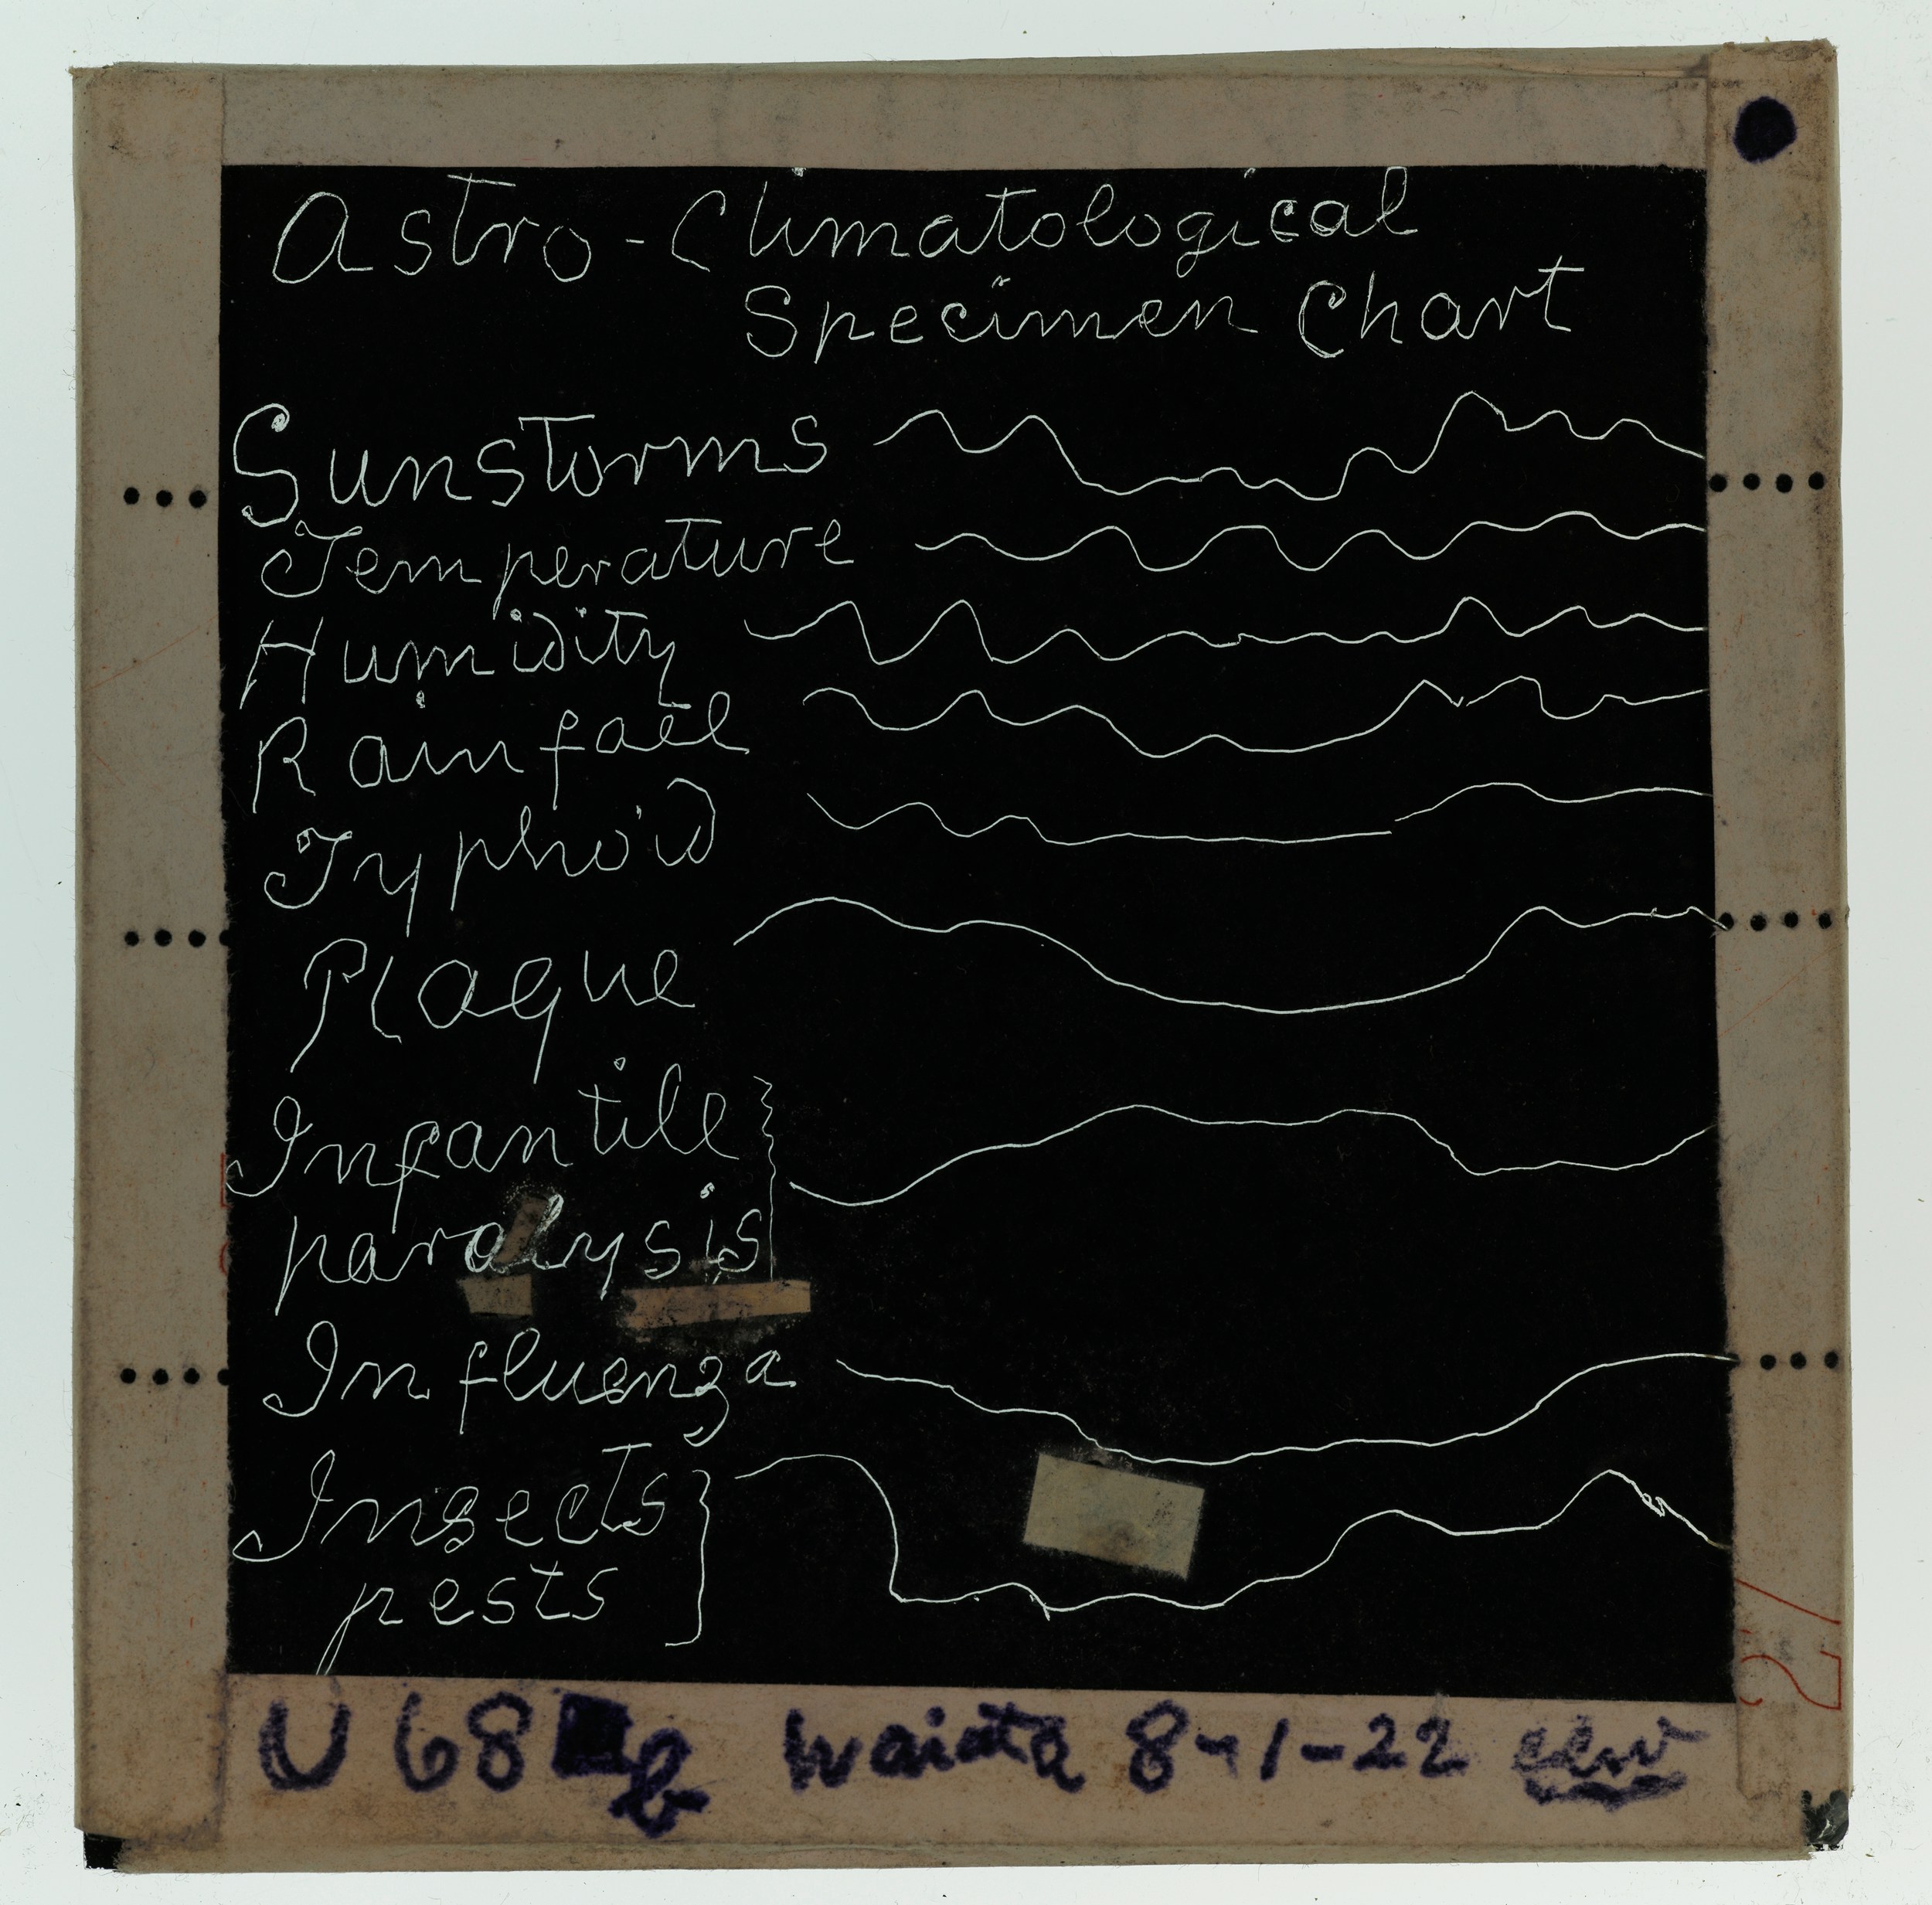 Astro-Climatological
Specimen Chart
Sunstorms
Temperature
Humidity
Rainfall
Typhoid
Plague
Infantile
paralysis
Influenza
Insects
pests
U 68 b Waiata 8-1-22
27